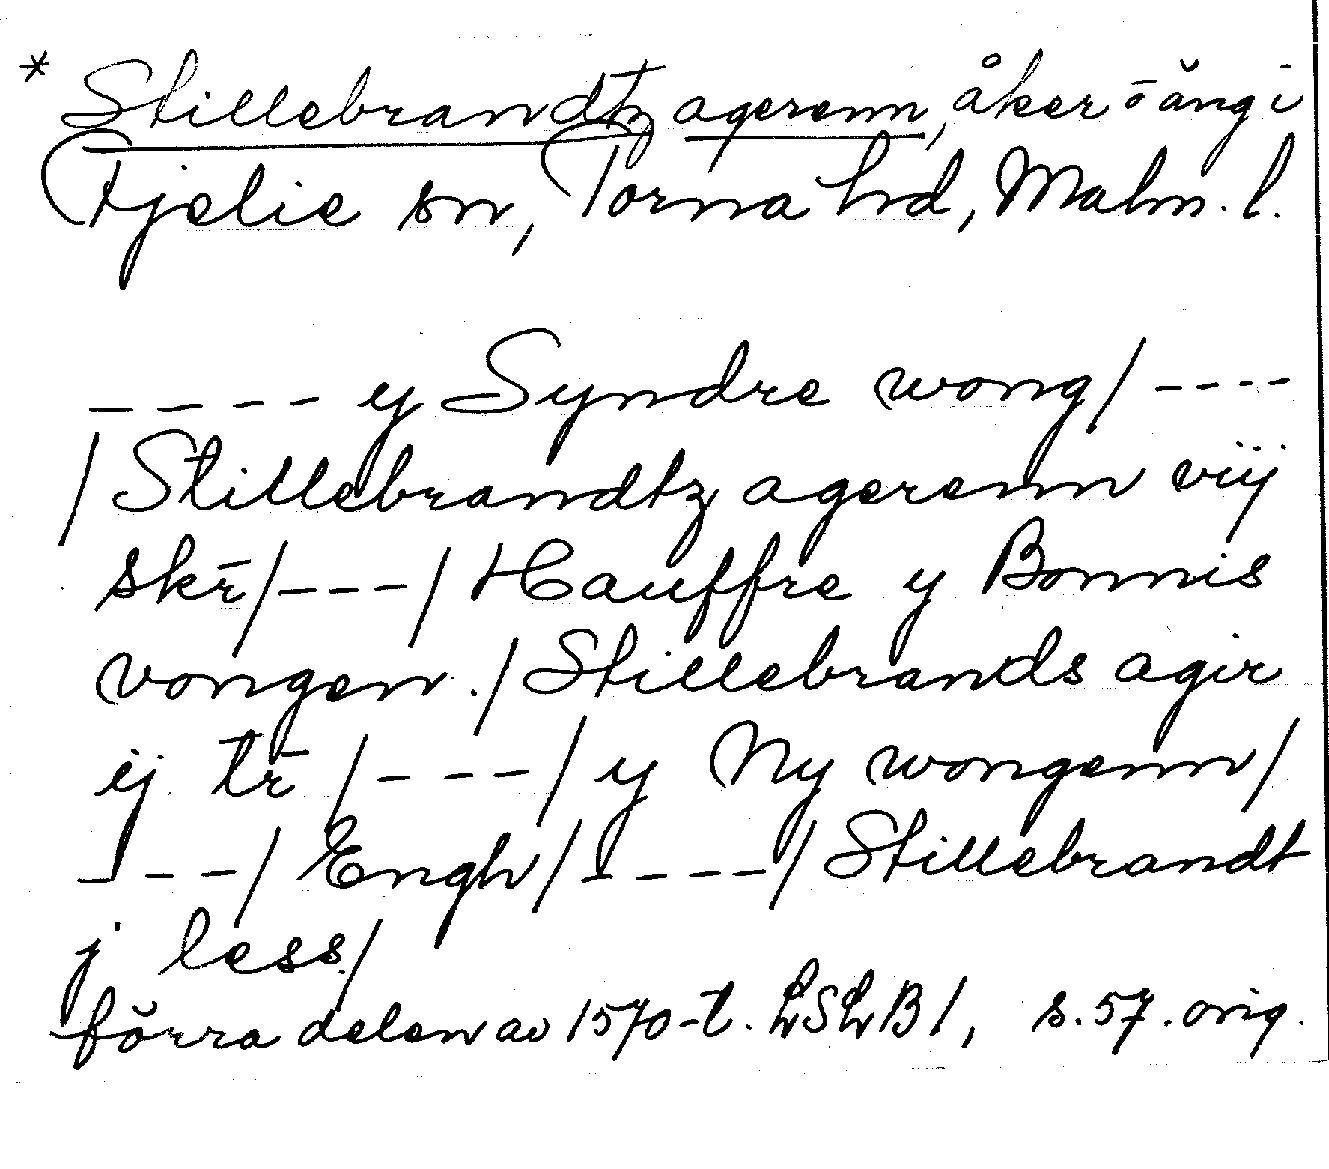 * Stillebrandtz agerenn, åker o äng i
Fjelie sn, Torna hd, Malm. l.
- - - - y Syndre wong/ - - - -
/ Stillebrandtz agerenn viij
skr̄/ - - - / Hauffre y Bonnis
vongen ./ Stillebrands agir
ij tr̄ / - - - / y Ny wongenn/
- - - / Engh/ - - - - / Stillebrandt
j less/
förra delen av 1570-t. LSLB 1, s. 57. orig.